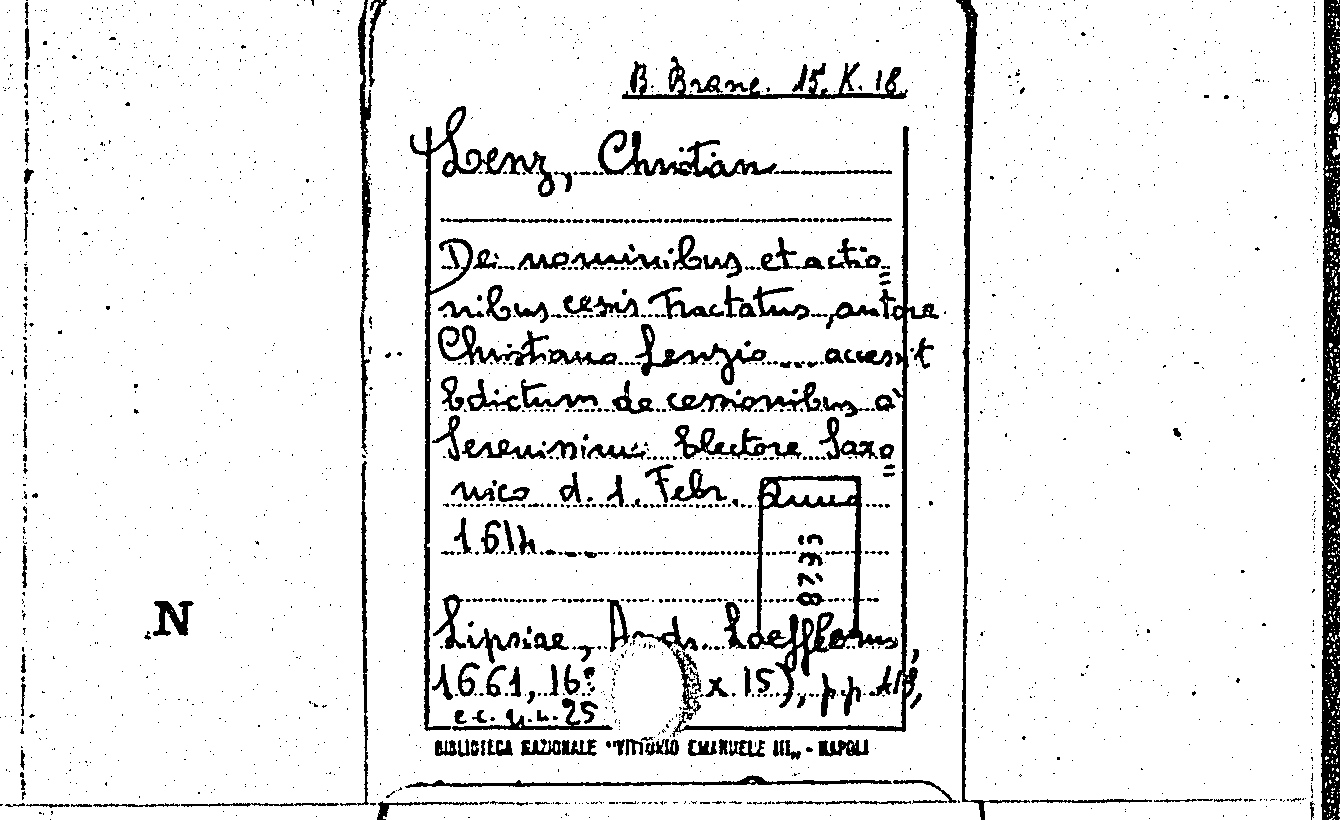 B. Branc. 15. K. 18.
Lenz, Christian
De nominibus et actio=
nibus cessis Tractatus, autore
Christiano Lenzio ... accessit
Edictum de cessionibus à
Serenissimo Electore Saxo=
nico d. 1. Febr. Anno
1614....
8293
N
Lipsiae, Andr. Loefflerus,
1661, 16º x 15), pp. 418,
e.c. q.n. 25
BIBLIOTECA NAZIONALE "VITTORIO EMANUELE III„ - NAPOLI